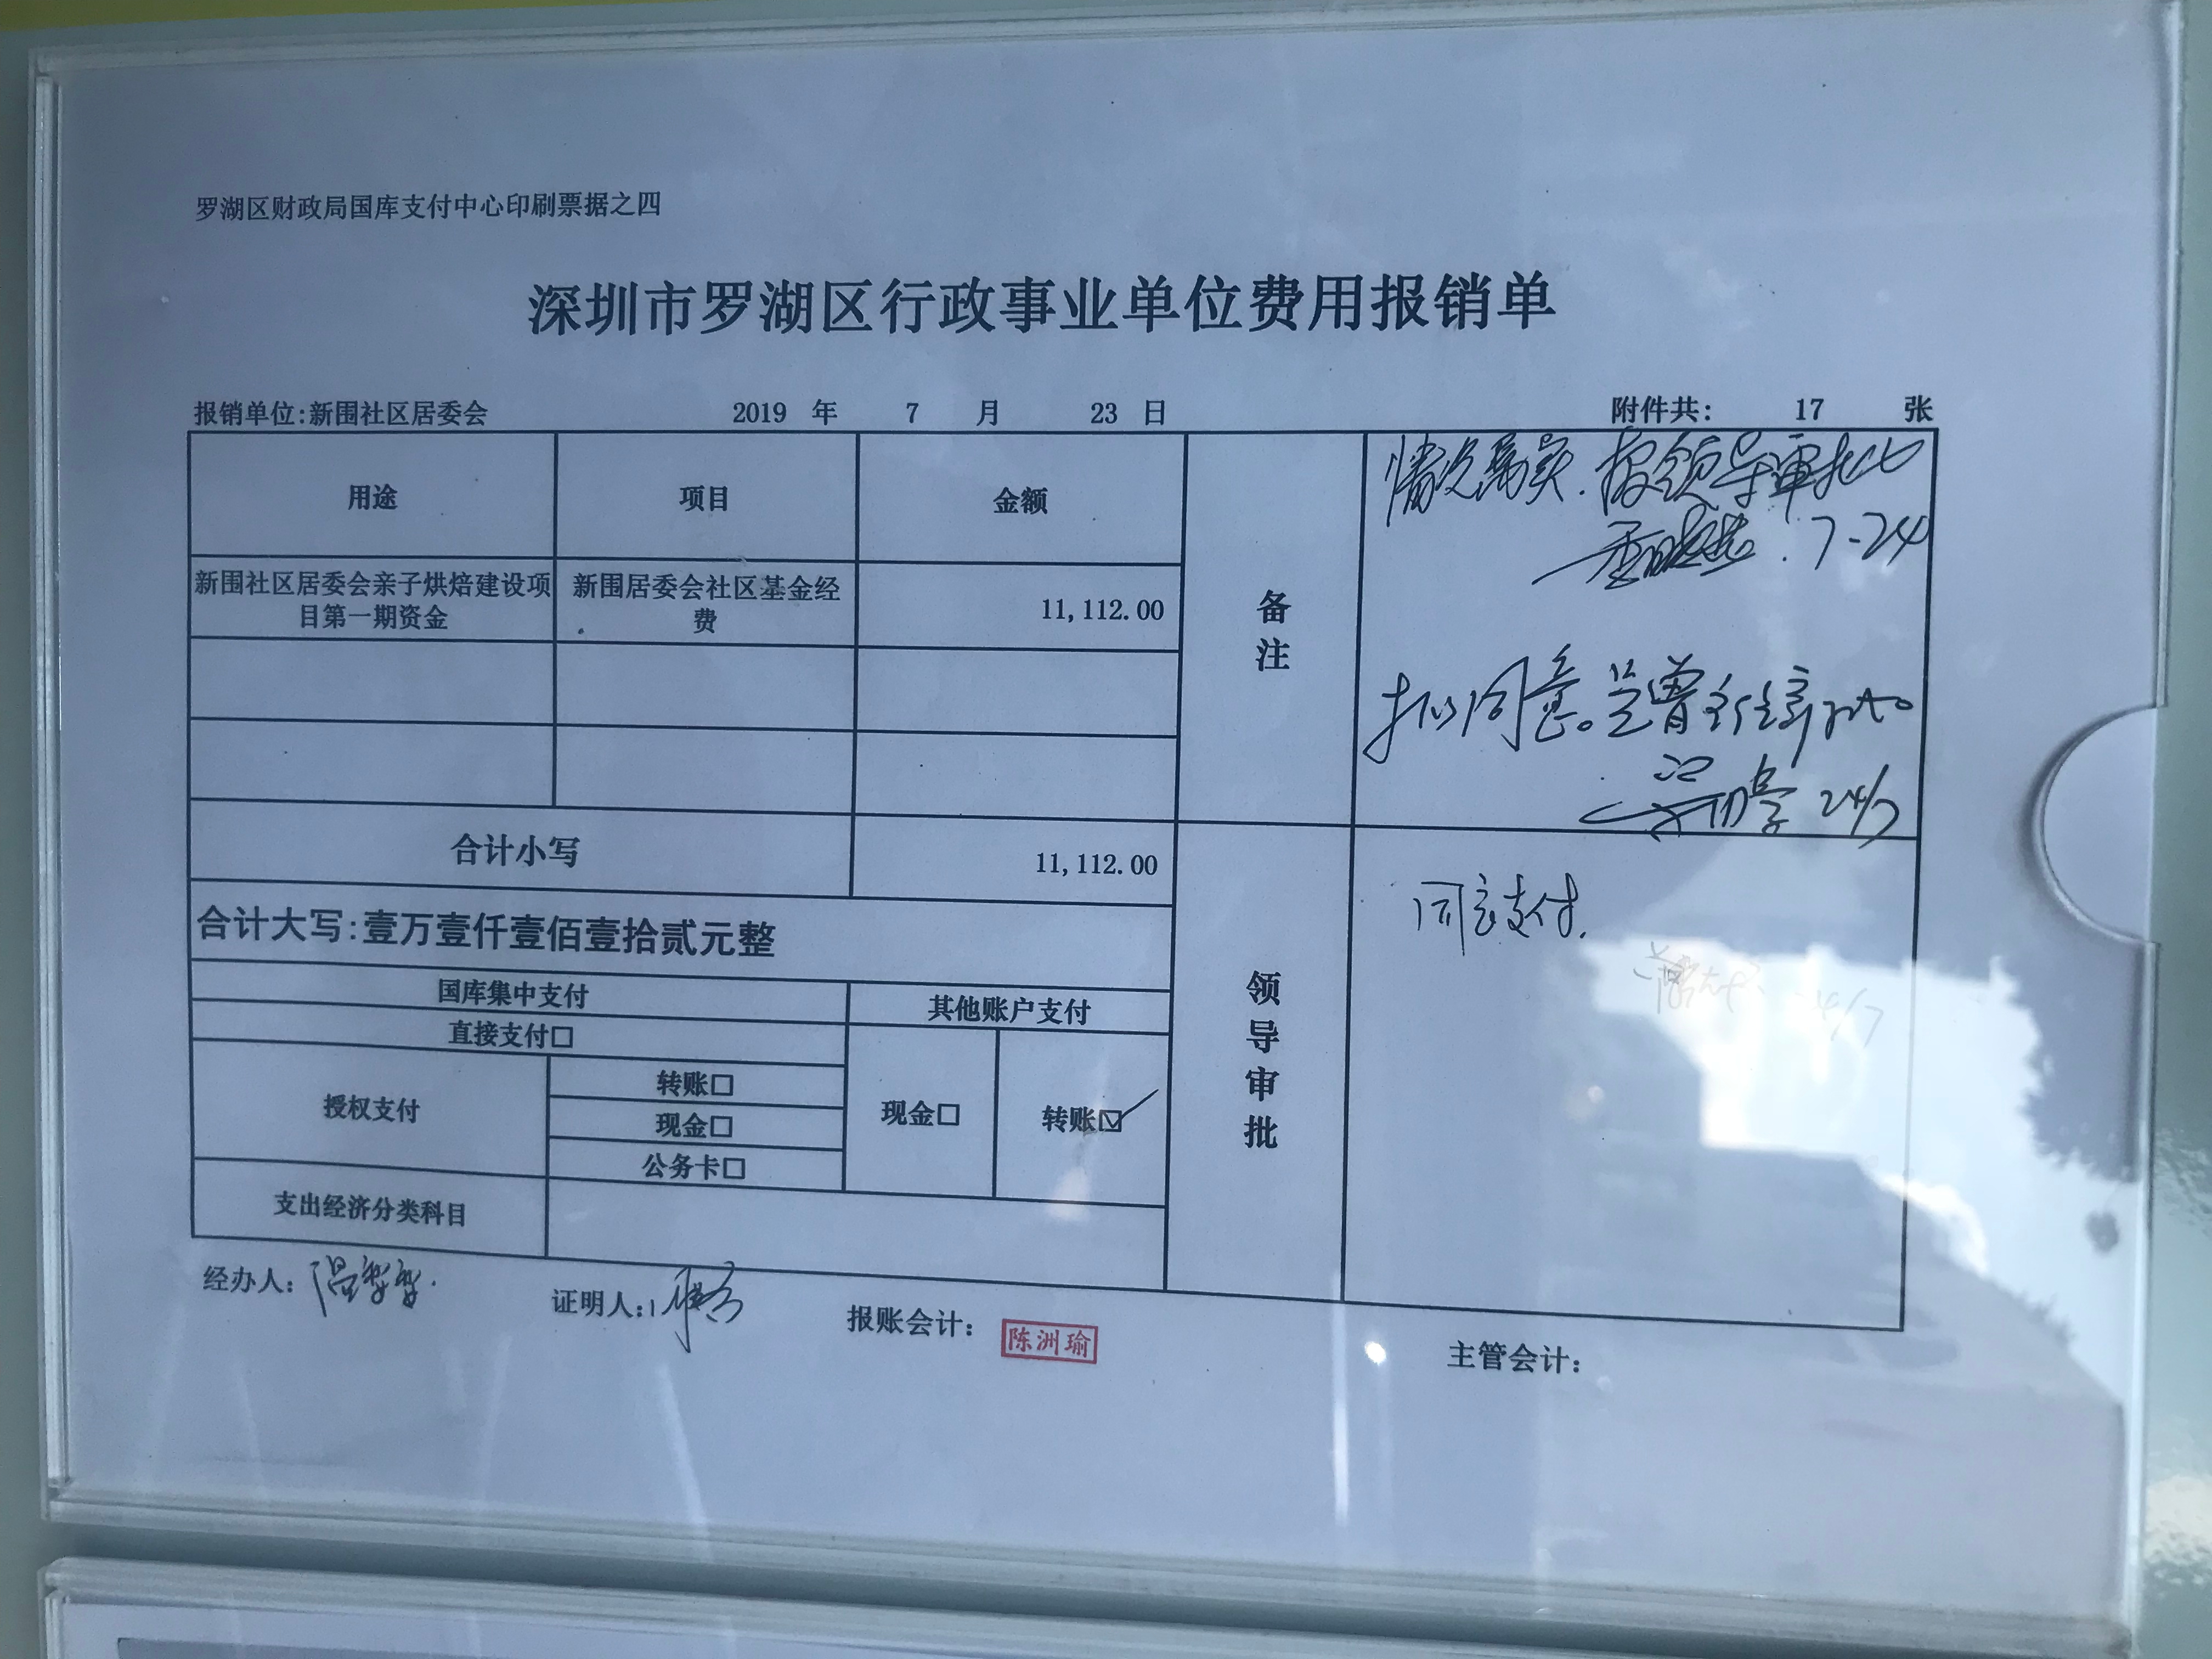 罗湖区财政局国库支付中心印刷票据之四
深圳市罗湖区行政事业单位费用报销单
报销单位:新围社区居委会 2019 年 7 月 23 日 附件共: 17 张
用途 项目 金额
新围社区居委会亲子烘焙建设项
目第一期资金
新围居委会社区基金经
费
11,112.00
合计小写 11,112.00
合计大写:壹万壹仟壹佰壹拾贰元整
国库集中支付 其他账户支付
直接支付□
授权支付
转账□
现金□
公务卡□
现金□ 转账☑
支出经济分类科目
备注
情况属实.报领导审批
7-24
拟同意。呈曾主任审批。
24/7
领导审批
同意支付.
经办人:
证明人:
报账会计: 陈洲瑜
主管会计: